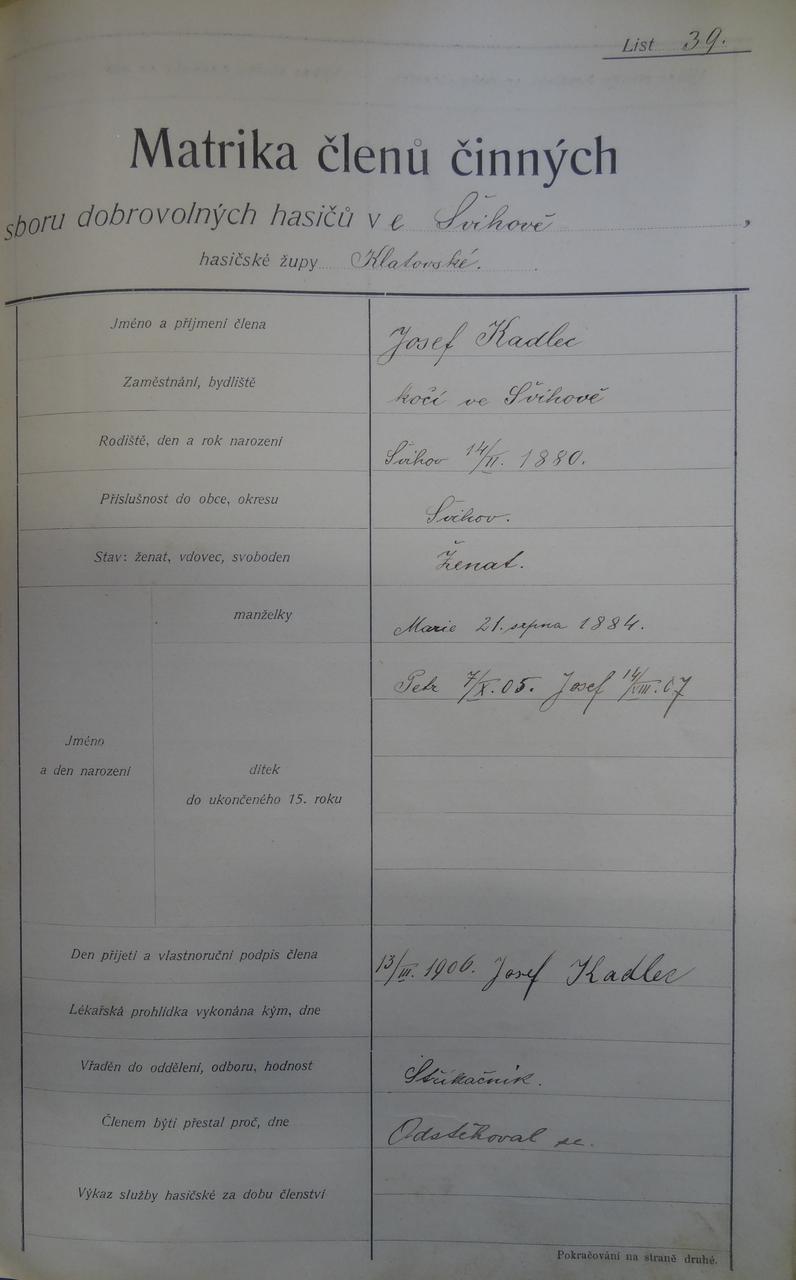 List 39.
Matrika členů činných
sboru dobrovolných hasičů v e Švihově,
hasičské župy Klatovské.
Jméno a příjmení člena Josef Kadlec
Zaměstnání, bydliště kočí ve Švihově
Rodiště, den a rok narození Švihov 14/II. 1880.
Příslušnost do obce, okresu Švihov.
Stav: ženat, vdovec, svoboden Ženat.
manželky Marie 21. srpna 1884.
Petr 7/X. 05. Josef 14/III. 07
Jméno
a den narození dítek
do ukončeného 15. roku
Den přijetí a vlastnoruční podpis člena 13/III. 1906. Josef Kadlec
Lékařská prohlídka vykonána kým, dne
Vřaděn do oddělení, odboru, hodnost Stříkačník.
Členem býti přestal proč, dne Odstěhoval se.
Výkaz služby hasičské za dobu členství
Pokračování na straně druhé.